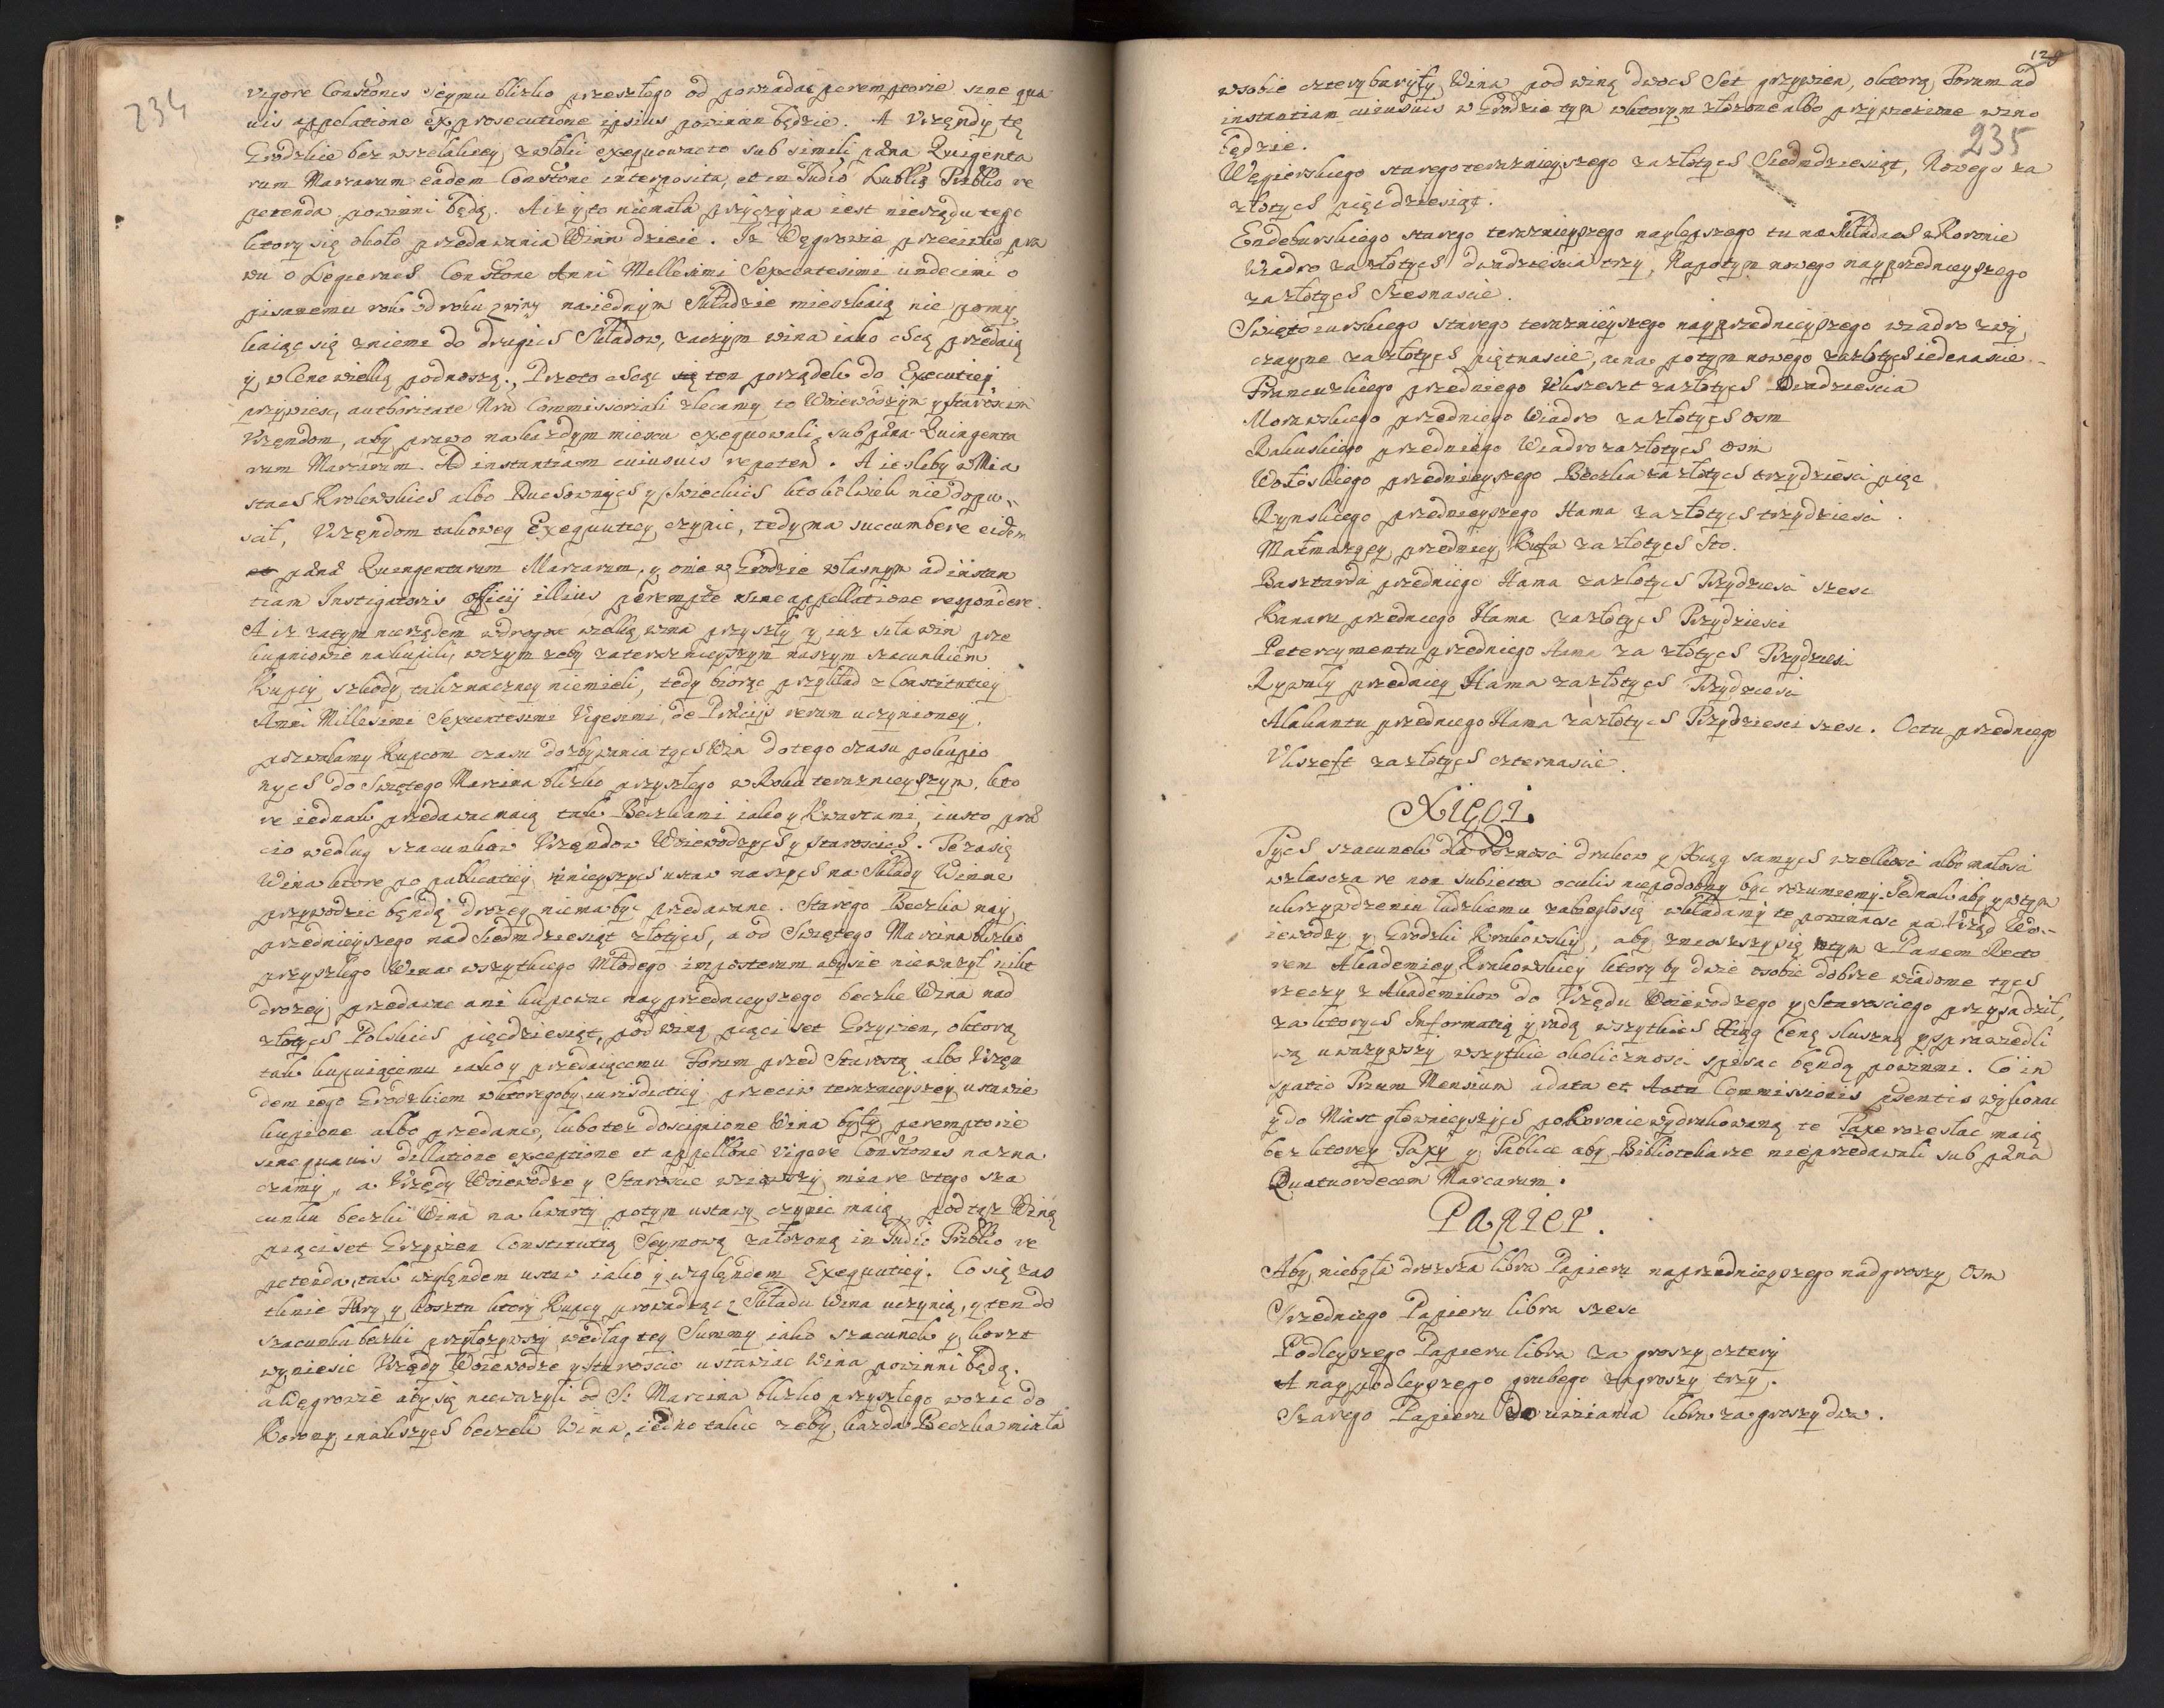 234
vigore Constõnis Seymu blizko przeszłego od powzadac peremptorie sine qua
uis appelatione ex prosecutione ipsius powinien będzie. A Vrzędy tę
Grodzkie bez wszelakiey zwłoki exequowac to sub simili pæna Quigenta
rum Marcarum eadem Constõne interposita, et in Judio Publico re
petenda powinni będą. A iz y to niemała przyczyna iest nierządu tego
ktory się około przedawania Winn dzieie. Iz Węgrowie przeciwko pra
wu o Legierach Constõne Anni Millesimi Sexcentesimi undecimi o
pisanemu rok od roku z winy na iednym Składzie mieszkaią nie pomy
kaiąc się z niemi do drugich Składow, zaczym wina iako chcą przedaią
y w Cene wielką podnoszą. Przeto chcąc ten porządek do Executiey
przywiesc, authoritate Nrã Commissoriali zlecamy to Woiewodzym y Staroscim
Vrzędom, aby prawo na kazdym miescu exequowali sub pæna Quingenta
rum Marcarum. Ad instantiam cuiusuis repeten. A iesliby w Mia
stach Krolewskich albo Duchownych y Swieckich ktokolwiek nie dopu
scił, Vrzędom takowey Exequutiey czynic, tedy ma succumbere eidem
pæna Quingentarum Marcarum, y onie w Grodzie własnym ad instan
tiam Instigatoris officij illius perempte sine appellatione respondere.
A iz zatym nierządem w drogosc wielką wina przyszły y iuz siła win prze
kupniowie nakupili, w czym zeby za terazniejszym naszym szacunkiem
Kupcy szkody tak znaczney niemieli, tedy biorąc przykład z Constitutiey
Anni Millesimi Sexcentesimi Vigesimi, de Prĕcijs rerum uczynioney,
pozwalamy Kupcom czasu do zbywania tych Win do tego czasu pokupio
nych do Swiętego Marcina blizko przyszłego w Roku terazniejszym, kto
re iednak przedawac maią tak Beczkami iako y Kwartami, iusto præ
cio według szacunkow Vrzędow Woiewodzych y Staroscich. Te zasię
Wina ktore po publicatiey ninieyszych ustaw naszych na Składy Winne
przywodzic będą drozey niema byc przedawane. Starego Beczka nay
przednieyszego nad Siedmdziesiąt złotych, a od Swiętego Marcina blizko
przyszłego Wina wszytkiego Młodego imposterum aby sie niewazył nikt
drozey przedawac ani kupowac nayprzednieyszego beczke Wina nad
złotych Polskich pięcdziesiąt, pod winą pięci set Grzywien, oktorą
tak kupuiącemu iako y przedaiącemu Forum przed Starostą albo Vrzęn
dem iego Grodzkiem w ktoregoby iurisdictiey przeciw terazniejszey ustawie
kupione albo przedane, lubo tez doscignione Wina były peremptorie
sine quauis dillatione exceptione et appellõne vigore Constõnis nazna
czamy, a Vrzędy Woiewodze y Staroscie wziąwszy miare z tego sza
cunku beczki Wina na kwarty potym ustawy czynic maią, pod tąz Winą
pięciset Grzywien Constitutią Seymową załozoną in Judio Publico re
petenda, tak względem ustaw iako y względem Exequutiey. Co się zas
tknie Fury y kosztu ktory Kupcy prowadząc z Składu Wina uczynią, y ten do
szacunku beczki przyłozywszy według tey Summy iako szacunek y koszt
wyniesie Vrzędy Woiewodze y Staroscie ustawiac Wina powinni będą.
a Węgrowie aby się niewazyli od S: Marcina blizko przyszłego wozic do
Korony inakszych beczek Wina, iedno takie zeby kazda Beczka miała
128
wsobie cztery baryły Wina pod winą dwoch Set grzywien, oktorą Forum ad
instantiam cuiusuis w Grodzie tym w ktorym złozone albo przywiezione wino
będzie.
235
Węgierskiego starego terazniejszego za złotych Siedmdziesiąt, Nowego za
złotych pięcdziesiąt.
Endeburskiego starego terazniejszego naylepszego tu na Składach w Koronie
Wiadro za złotych dwadziescia trzy, Napotym nowego nayprzednieyszego
za złotych Szesnascie.
Swiętoiurskiego starego terazniejszego nayprzednieyszego wiadro zwy
czayne za złotych piętnascie, a na potym nowego za złotych iedenascie
Francuzkiego przedniego Vkszeszt za złotych Dwadziescia
Morawskiego przedniego Wiadro za złotych osm
Rakuskiego przedniego Wiadro za złotych osm
Wołoskiego przednieyszego Beczka za złotych trzydziesci pięc
Rynskiego przednieyszego Hama za złotych trzydziesci.
Małmazyey przedniey Kufa za złotych Sto.
Basztarda przedniego Hama za złotych Trzydziesci szesc
Kanaru przedniego Hama za złotych Trzydziesci
Petercymentu przedniego Hama za złotych Trzydziesci
Rywuły przedniey Hama za złotych Trzydziesci
Alakantu przedniego Hama za złotych Trzydziesci szesc. Octu przedniego
Vkszeft za złotych czternascie.
Xięgi.
Tych szacunek dla roznosci drukow y Xiąg samych wielkosci albo małosci
wzlascza re non subiecta oculis niepodobny byc rozumiemy. Jednak aby y wtym
ukrzywdzeniu ludzkiemu zabiegło się wkładamy te powinnosc na Vrząd Wo-
iewodzy y Grodzki Krakowsky, aby zniozszy się wtym z Panem Recto
rem Akademiey Krakowskiey ktory by dwie osobie dobrze wiadome tych
rzeczy z Akademikow do Vrzędu Woiewodzego y Starosciego przysadził,
za ktorych Informatią y radą wszytkich Xiąg Cenę słuszną y sprawiedli
wą uwazywszy wszytkie okolicznosci spisac będą powinni. Co in
spatio Trium Mensium a data et Actu Commissionis psentis wykonac
y do Miast głownieyszych po Koronie wydrukowaną te Taxe rozesłac maią
bez ktorey Taxy y Tablice aby Bibliotekarze nieprzedawali sub pæna
Quatuordecem Marcarum.
Papier.
Aby niebyła drozsza libra Papieru naprzednieyszego nad groszy Osm
Srzedniego Papieru libra szesc
Podleyszego Papieru libra za groszy cztery
A naypodleyszego grubego za groszy trzy.
Szarego Papieru do uwiiania libra za groszy dwa.